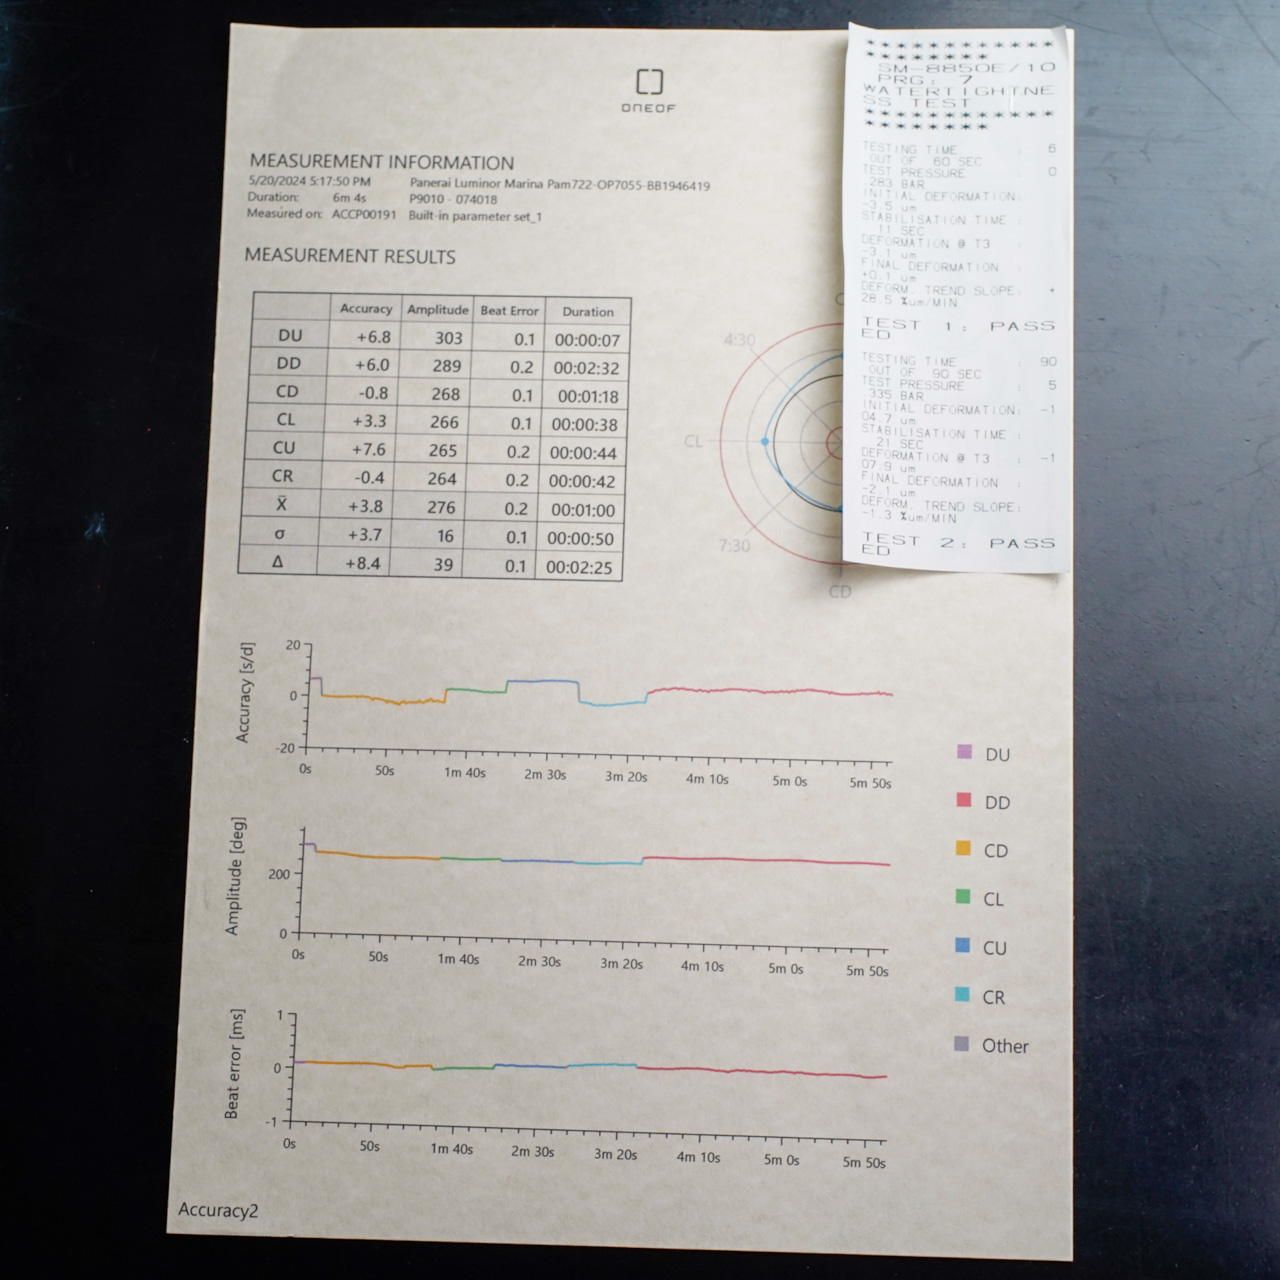 ONEOF
MEASUREMENT INFORMATION
5/20/2024 5:17:50 PM Panerai Luminor Marina Pam722-OP7055-BB1946419
Duration: 6m 4s P9010 - 074018
Measured on: ACCP00191 Built-in parameter set_1
MEASUREMENT RESULTS
Accuracy Amplitude Beat Error Duration
DU +6.8 303 0.1 00:00:07
DD +6.0 289 0.2 00:02:32
CD -0.8 268 0.1 00:01:18
CL +3.3 266 0.1 00:00:38
CU +7.6 265 0.2 00:00:44
CR -0.4 264 0.2 00:00:42
X̄ +3.8 276 0.2 00:01:00
σ +3.7 16 0.1 00:00:50
Δ +8.4 39 0.1 00:02:25
4:30
CL
7:30
CD
* * * * * * * * * * *
* * * * * * * *
SM-8850E/10
PRG: 7
WATERTIGHTNE
SS TEST
* * * * * * * * * * *
* * * * * * * *
TESTING TIME : 6
OUT OF 60 SEC
TEST PRESSURE : 0
.283 BAR
INITIAL DEFORMATION:
-3.5 um
STABILISATION TIME :
11 SEC
DEFORMATION @ T3 :
-3.1 um
FINAL DEFORMATION :
+0.1 um
DEFORM. TREND SLOPE: +
28.5 %um/MIN
TEST 1: PASS
ED
TESTING TIME : 90
OUT OF 90 SEC
TEST PRESSURE : 5
.335 BAR
INITIAL DEFORMATION: -1
04.7 um
STABILISATION TIME :
21 SEC
DEFORMATION @ T3 : -1
07.9 um
FINAL DEFORMATION :
-2.1 um
DEFORM. TREND SLOPE:
-1.3 %um/MIN
TEST 2: PASS
ED
Accuracy [s/d]
20
0
-20
0s 50s 1m 40s 2m 30s 3m 20s 4m 10s 5m 0s 5m 50s
Amplitude [deg]
200
0
0s 50s 1m 40s 2m 30s 3m 20s 4m 10s 5m 0s 5m 50s
Beat error [ms]
1
0
-1
0s 50s 1m 40s 2m 30s 3m 20s 4m 10s 5m 0s 5m 50s
DU
DD
CD
CL
CU
CR
Other
Accuracy2